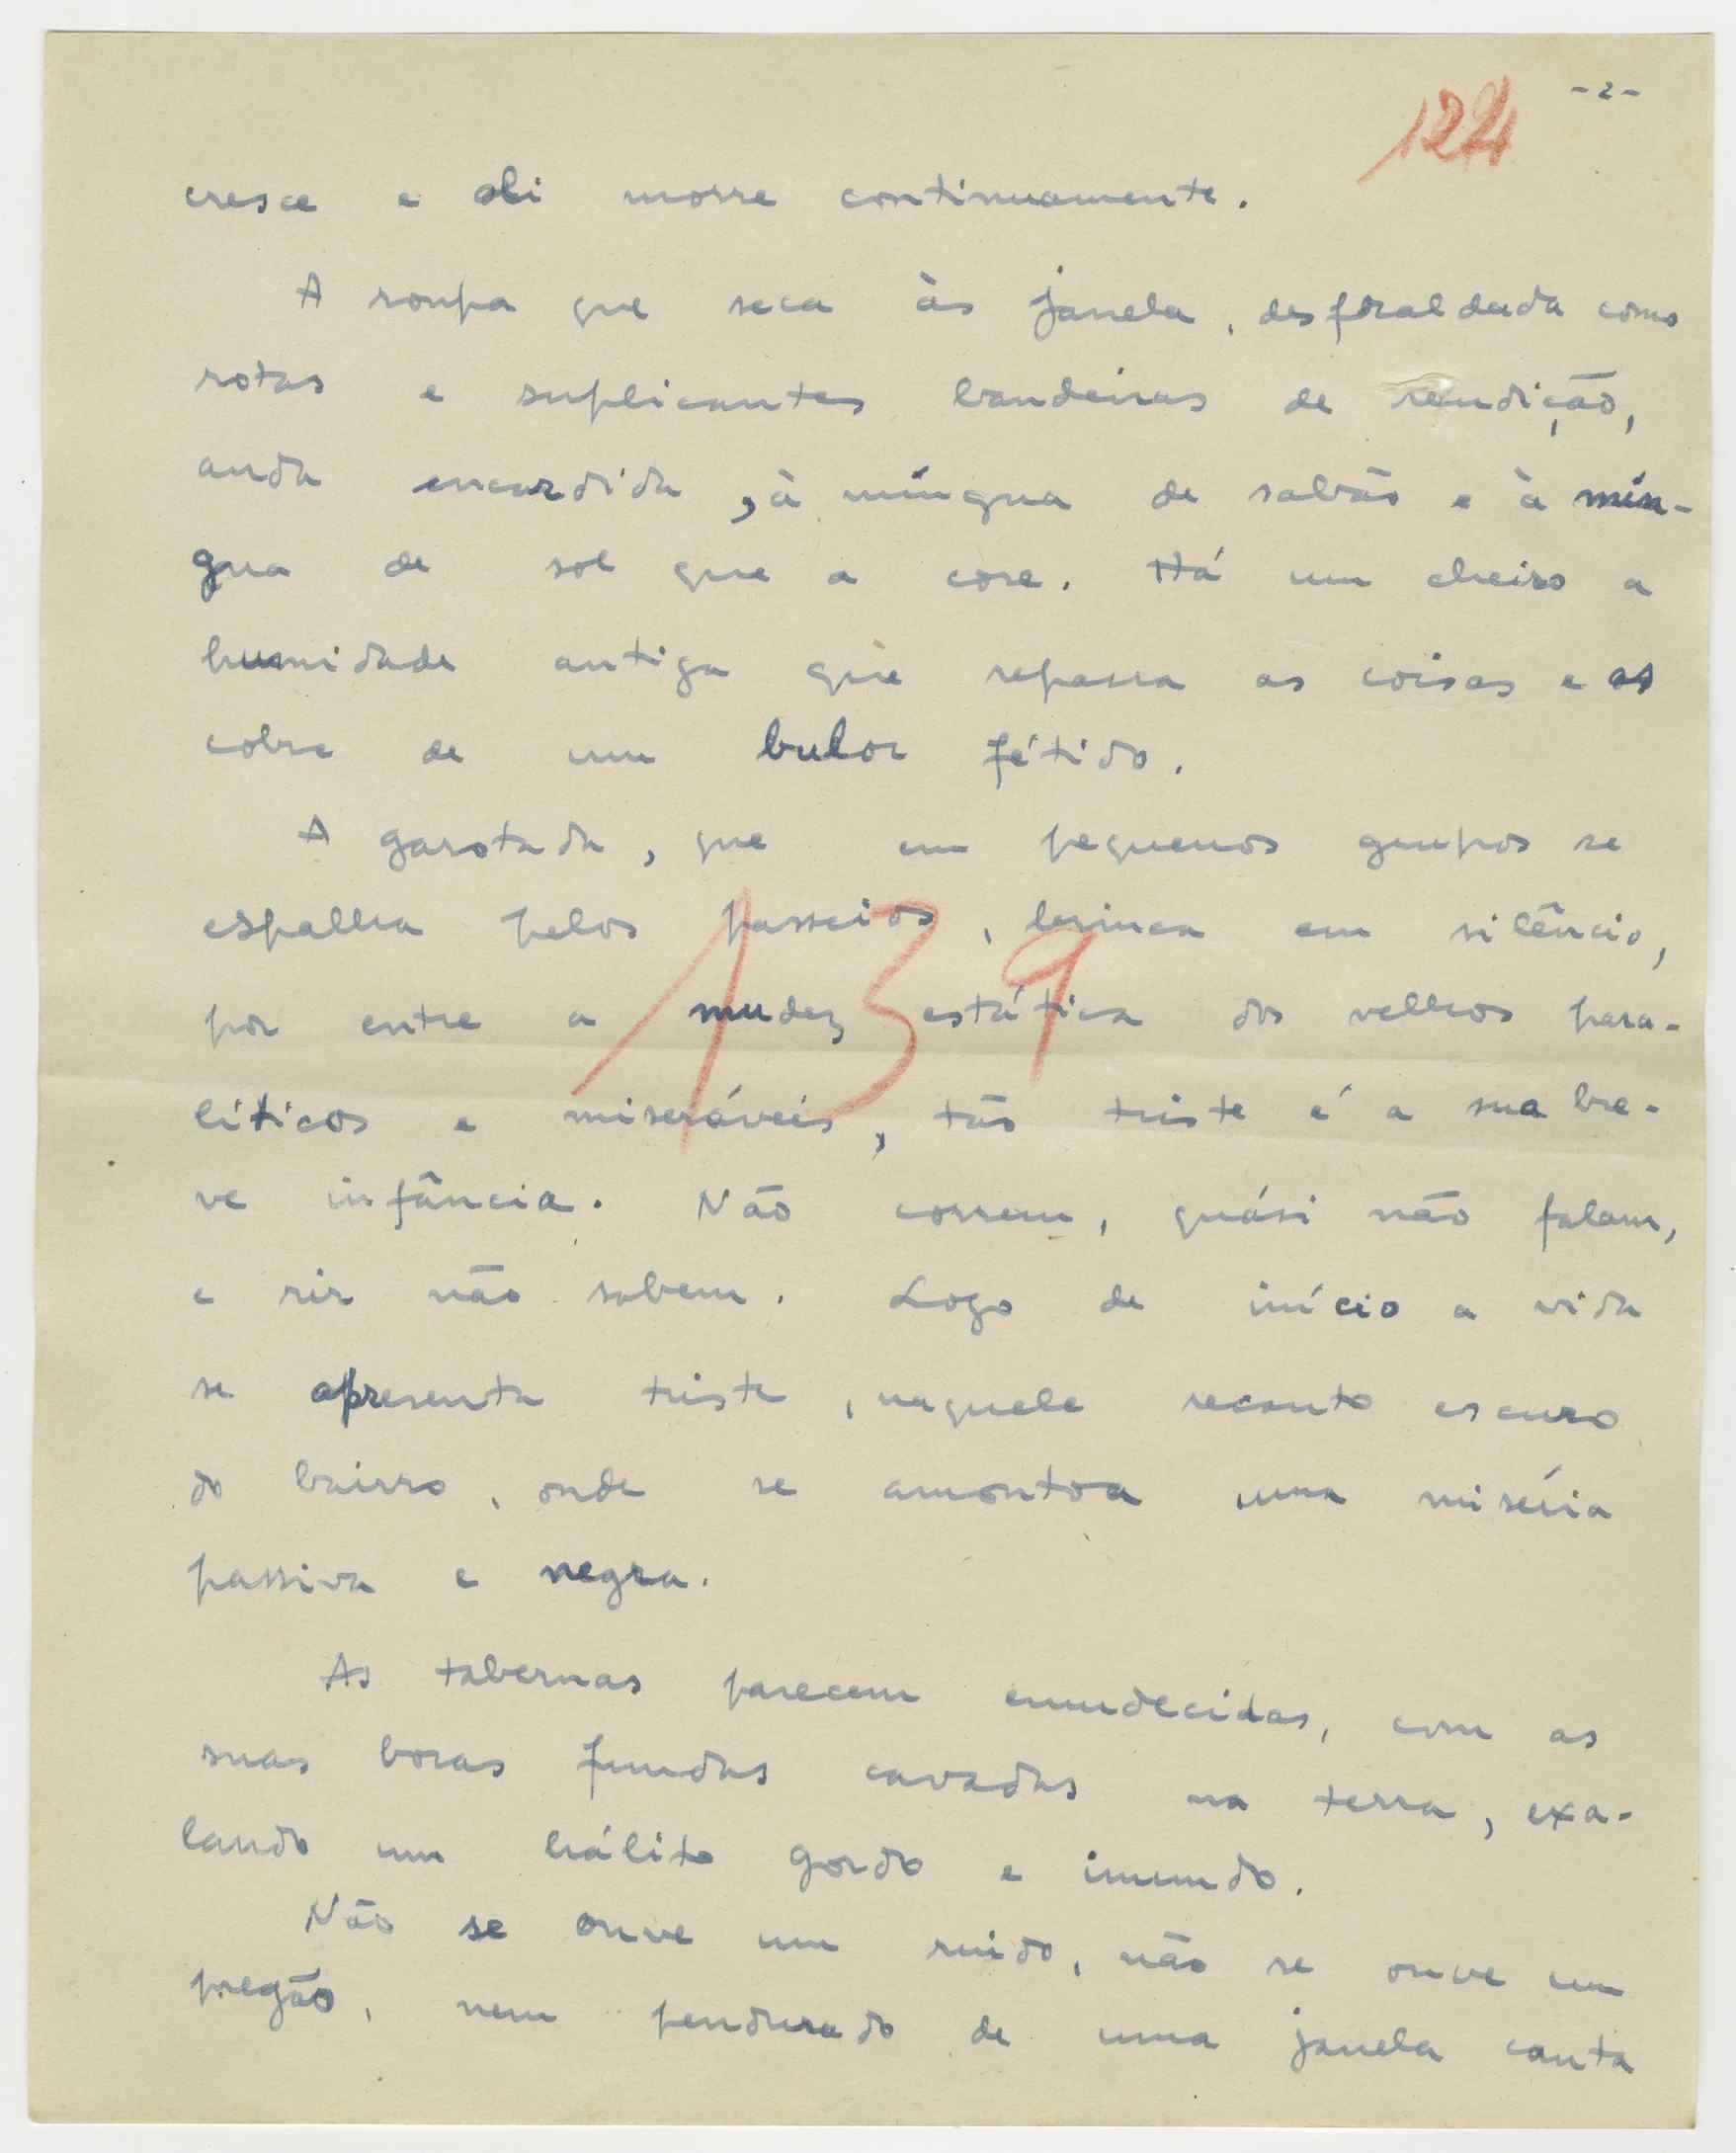 -2-
124
cresce e ali morre continuamente.
A roupa que seca às janela, desfraldada como
rotas e suplicantes bandeiras de rendição,
anda encardida, à míngua de sabão e à mín-
gua de sol que a core. Há um cheiro a
humidade antiga que repassa as coisas e as
cobre de um bulor fétido.
A garotada, que em pequenos grupos se
espalha pelos passeios, brinca em silêncio,
por entre a mudez estática dos velhos para-
líticos e miseráveis, tão triste é a sua bre-
139
ve infância. Não correm, quási não falam,
e rir não sabem. Logo de início a vida
se apresenta triste, naquele recanto escuro
do bairro, onde se amontoa uma miséria
passiva e negra.
As tabernas parecem emudecidas, com as
suas bocas fundas cavadas na terra, exa-
lando um hálito gordo e imundo.
Não se ouve um ruido, não se ouve um
pregão, nem pendurado de uma janela canta